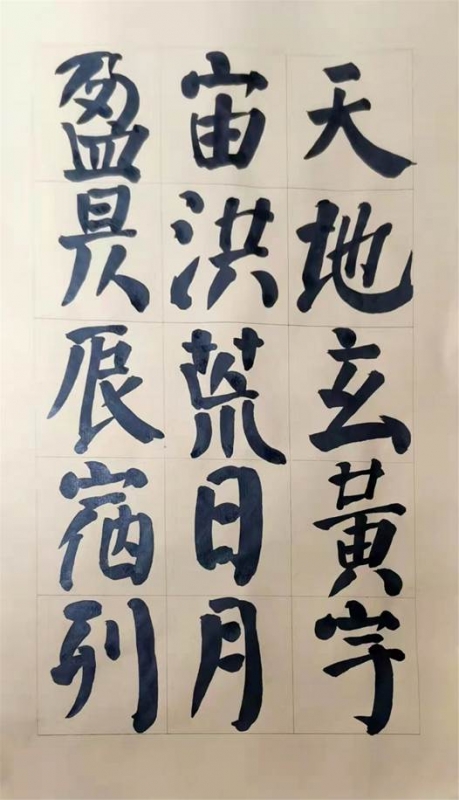 天地玄黃宇
宙洪荒日月
盈昃辰宿列